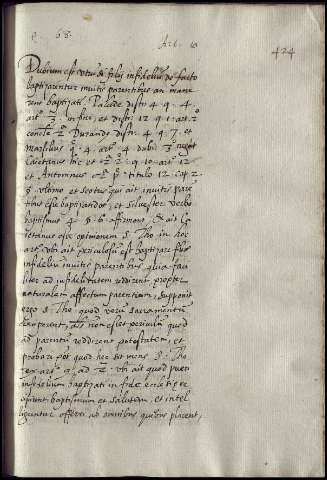 q. 68. Art. 10
424
Dubium est utrum si filii infidelium de facto
baptizarentur invitis parentibus an mane
rent baptizati. Palude distin. 4. q. 4.
art. 3 in fine, et distin. 12 q. 1. art. 2
2. Durandus distin. 4 q. 7. et
q. 4. art. 4 dub. 3
Caietanus hic et 2. 2. q. 10. art. 12
et Antoninus p. titulo 12. cap. 2
§. ultimo et Scotus qui ait invitis paren
tibus esse baptizandos, et Silvester verbo
baptismus 4. § 6. affirmant, et ait Ca
ietanus esse opinionem S. Tho. in hoc
art. ubi ait periculosum est baptizare filios
infidelium invitis parentibus, quia faci
liter ad infidelitatem redirent propter
naturalem affectum parentum, supponit
ergo S. Tho. quod verum sacramentum
susciperent, alias non esset periculum quod
ad parentum redirent potestatem, et
probari potest quod haec sit mens S. Tho.
ex art. 9. ad 2. ubi ait quod pueri
infidelium baptizati in fide ecclesiae re
cipiunt baptismum et salutem, et intel
liguntur offerri, ab omnibus quibus placent,